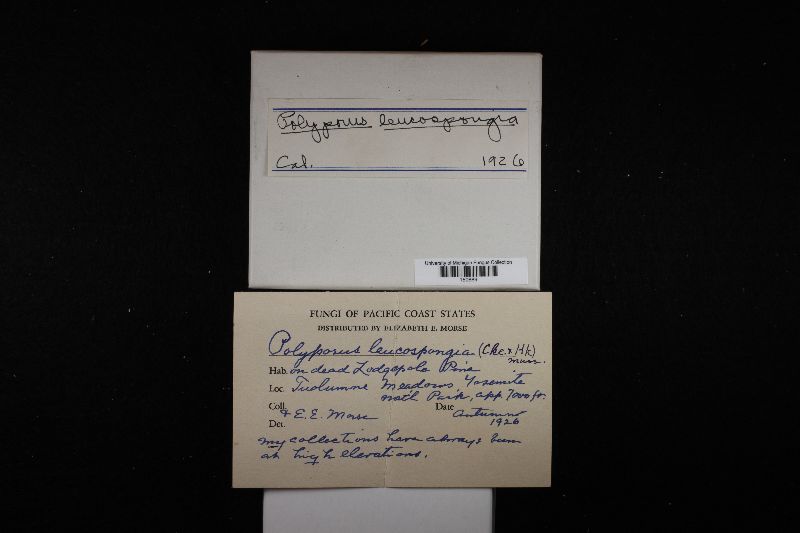 Polyporus leucospongia
Cal. 1926
University of Michigan Fungus Collection
FUNGI OF PACIFIC COAST STATES
DISTRIBUTED BY ELIZABETH E. MORSE
Polyporus leucospongia (Cke. & Hk)
Murr.
Hab. on dead Lodgepole Pine
Loc. Tuolumne Meadows Yosemite
nat'l Park, app 7000 ft.
Coll. & E. E. Morse Date Autumn
Det. 1926
My collections have always been
at high elevations.